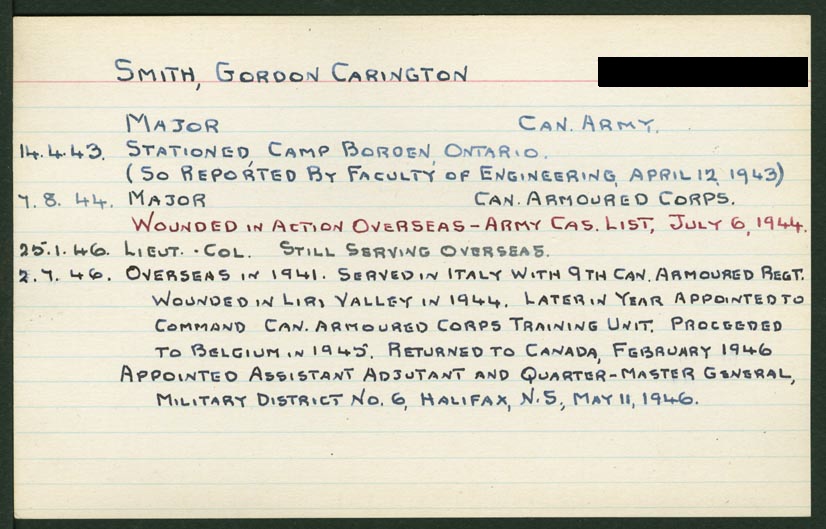 SMITH, GORDON CARINGTON
MAJOR CAN. ARMY.
14.4.43. STATIONED, CAMP BORDEN, ONTARIO.
(SO REPORTED BY FACULTY OF ENGINEERING, APRIL 12, 1943)
7. 8. 44. MAJOR CAN. ARMOURED CORPS.
WOUNDED IN ACTION OVERSEAS - ARMY CAS. LIST, JULY 6, 1944.
25.1.46. LIEUT. - COL. STILL SERVING OVERSEAS.
2.7.46. OVERSEAS IN 1941. SERVED IN ITALY WITH 9TH CAN. ARMOURED REGT.
WOUNDED IN LIRI VALLEY IN 1944. LATER IN YEAR APPOINTED TO
COMMAND CAN. ARMOURED CORPS TRAINING UNIT. PROCEEDED
TO BELGIUM IN 1945. RETURNED TO CANADA, FEBRUARY 1946
APPOINTED ASSISTANT ADJUTANT AND QUARTER-MASTER GENERAL,
MILITARY DISTRICT NO. 6, HALIFAX, N.S., MAY 11, 1946.